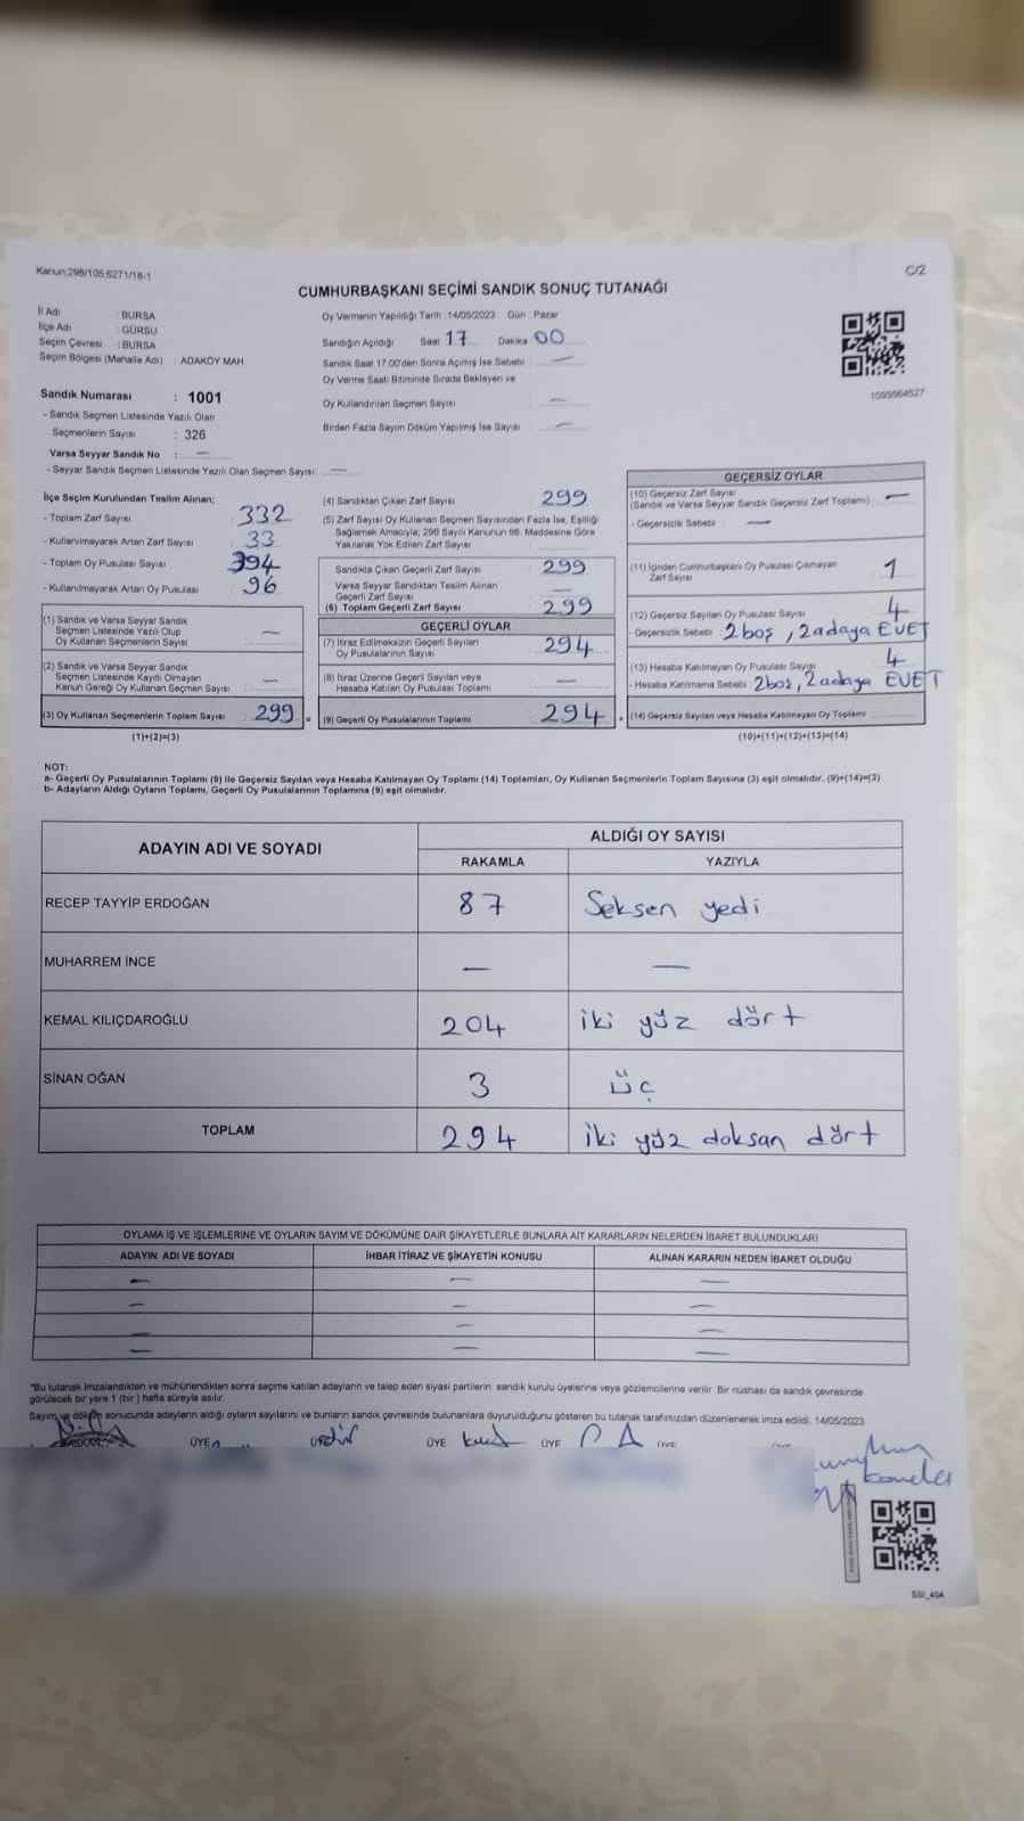 Kanun:298/105,6271/18-1
C/2
CUMHURBAŞKANI SEÇİMİ SANDIK SONUÇ TUTANAĞI
İl Adı : BURSA
İlçe Adı : GÜRSU
Seçim Çevresi : BURSA
Seçim Bölgesi (Mahalle Adı) : ADAKÖY MAH
Sandık Numarası : 1001
- Sandık Seçmen Listesinde Yazılı Olan
Seçmenlerin Sayısı : 326
Varsa Seyyar Sandık No : —
- Seyyar Sandık Seçmen Listesinde Yazılı Olan Seçmen Sayısı : —
Oy Vermenin Yapıldığı Tarih : 14/05/2023 Gün : Pazar
Sandığın Açıldığı Saat 17 Dakika 00
Sandık Saat 17:00'den Sonra Açılmış İse Sebebi —
Oy Verme Saati Bitiminde Sırada Bekleyen ve
Oy Kullandırılan Seçmen Sayısı —
Birden Fazla Sayım Döküm Yapılmış İse Sayısı —
1095664527
İlçe Seçim Kurulundan Teslim Alınan;
- Toplam Zarf Sayısı 332
- Kullanılmayarak Artan Zarf Sayısı 33
- Toplam Oy Pusulası Sayısı 394
- Kullanılmayarak Artan Oy Pusulası 96
(1) Sandık ve Varsa Seyyar Sandık
Seçmen Listesinde Yazılı Olup
Oy Kullanan Seçmenlerin Sayısı —
(2) Sandık ve Varsa Seyyar Sandık
Seçmen Listesinde Kayıtlı Olmayan
Kanun Gereği Oy Kullanan Seçmen Sayısı —
(3) Oy Kullanan Seçmenlerin Toplam Sayısı 299
(1)+(2)=(3)
(4) Sandıktan Çıkan Zarf Sayısı 299
(5) Zarf Sayısı Oy Kullanan Seçmen Sayısından Fazla İse, Eşitliği
Sağlamak Amacıyla, 298 Sayılı Kanunun 98. Maddesine Göre
Yakılarak Yok Edilen Zarf Sayısı
Sandıkta Çıkan Geçerli Zarf Sayısı 299
Varsa Seyyar Sandıktan Teslim Alınan
Geçerli Zarf Sayısı —
(6) Toplam Geçerli Zarf Sayısı 299
GEÇERLİ OYLAR
(7) İtiraz Edilmeksizin Geçerli Sayılan
Oy Pusulalarının Sayısı 294
(8) İtiraz Üzerine Geçerli Sayılan veya
Hesaba Katılan Oy Pusulası Toplamı —
(9) Geçerli Oy Pusulalarının Toplamı 294
GEÇERSİZ OYLAR
(10) Geçersiz Zarf Sayısı
(Sandık ve Varsa Seyyar Sandık Geçersiz Zarf Toplamı) —
- Geçersizlik Sebebi —
(11) İçinden Cumhurbaşkanı Oy Pusulası Çıkmayan
Zarf Sayısı 1
(12) Geçersiz Sayılan Oy Pusulası Sayısı 4
- Geçersizlik Sebebi 2 boş , 2 adaya EVET
(13) Hesaba Katılmayan Oy Pusulası Sayısı 4
- Hesaba Katılmama Sebebi 2 boş, 2 adaya EVET
(14) Geçersiz Sayılan veya Hesaba Katılmayan Oy Toplamı
(10)+(11)+(12)+(13)=(14)
NOT:
a- Geçerli Oy Pusulalarının Toplamı (9) ile Geçersiz Sayılan veya Hesaba Katılmayan Oy Toplamı (14) Toplamları, Oy Kullanan Seçmenlerin Toplam Sayısına (3) eşit olmalıdır. (9)+(14)=(3)
b- Adayların Aldığı Oyların Toplamı, Geçerli Oy Pusulalarının Toplamına (9) eşit olmalıdır.
ADAYIN ADI VE SOYADI
ALDIĞI OY SAYISI
RAKAMLA YAZIYLA
RECEP TAYYİP ERDOĞAN 87 Seksen yedi
MUHARREM İNCE — —
KEMAL KILIÇDAROĞLU 204 iki yüz dört
SİNAN OĞAN 3 üç
TOPLAM 294 iki yüz doksan dört
OYLAMA İŞ VE İŞLEMLERİNE VE OYLARIN SAYIM VE DÖKÜMÜNE DAİR ŞİKAYETLERLE BUNLARA AİT KARARLARIN NELERDEN İBARET BULUNDUKLARI
ADAYIN ADI VE SOYADI İHBAR İTİRAZ VE ŞİKAYETİN KONUSU ALINAN KARARIN NEDEN İBARET OLDUĞU
— — —
— — —
— — —
— — —
*Bu tutanak imzalandıktan ve mühürlendikten sonra seçime katılan adayların ve talep eden siyasi partilerin sandık kurulu üyelerine veya gözlemcilerine verilir. Bir nüshası da sandık çevresinde
görülecek bir yere 1 (bir) hafta süreyle asılır.
Sayım ve döküm sonucunda adayların aldığı oyların sayılarını ve bunların sandık çevresinde bulunanlara duyurulduğunu gösteren bu tutanak tarafımızdan düzenlenerek imza edildi. 14/05/2023
BAŞKAN ÜYE ÜYE ÜYE ÜYE